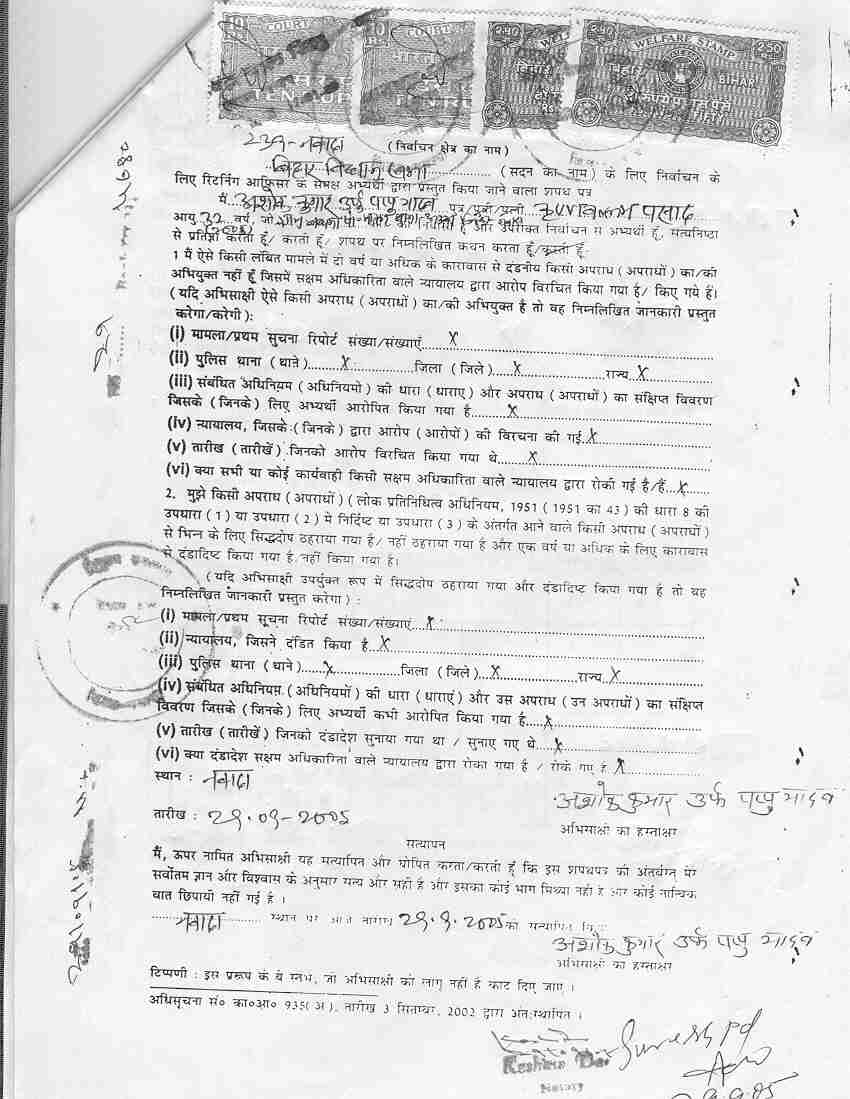 10 COURT
RS. TEN RUPEES
COURT
2.50 WEL
बिहार
2.50 WELFARE STAMP 2.50
बिहार BIHAR
दो रुपये पचास पैसे
239-नवादा (निर्वाचन क्षेत्र का नाम)
बिहार विधान सभा (सदन का नाम) के लिए निर्वाचन के
लिए रिटर्निंग आफिसर के समक्ष अभ्यर्थी द्वारा प्रस्तुत किया जाने वाला शपथ पत्र
मैं अशोक कुमार उर्फ पप्पु यादव पत्र/पुत्री/पत्नी प्रसाद
आयु 32 वर्ष, जो और उपरोक्त निर्वाचन से अभ्यर्थी हूँ, सत्यनिष्ठा
से प्रतिज्ञा करता हूँ/ करती हूँ/ शपथ पर निम्नलिखित कथन करता हूँ/करती हूँ:
1 मैं ऐसे किसी लंबित मामले में दो वर्ष या अधिक के कारावास से दंडनीय किसी अपराध (अपराधों) का/की
अभियुक्त नहीं हूँ जिसमें सक्षम अधिकारिता वाले न्यायालय द्वारा आरोप विरचित किया गया है/ किए गये हैं।
(यदि अभिसाक्षी ऐसे किसी अपराध (अपराधों) का/की अभियुक्त है तो वह निम्नलिखित जानकारी प्रस्तुत
करेगा/करेगी):
(i) मामला/प्रथम सुचना रिपोर्ट संख्या/संख्याएँ X
(ii) पुलिस थाना (थाने) X जिला (जिले) X राज्य X
(iii) संबंधित अधिनियम (अधिनियमो) की धारा (धाराए) और अपराध (अपराधों) का संक्षिप्त विवरण
जिसके (जिनके) लिए अभ्यर्थी आरोपित किया गया है X
(iv) न्यायालय, जिसके (जिनके) द्वारा आरोप (आरोपों) की विरचना की गई X
(v) तारीख (तारीखें) जिनको आरोप विरचित किया गया थे X
(vi) क्या सभी या कोई कार्यवाही किसी सक्षम अधिकारिता वाले न्यायालय द्वारा रोकी गई है/हैं X
2. मुझे किसी अपराध (अपराधों) (लोक प्रतिनिधित्व अधिनियम, 1951 (1951 का 43) की धारा 8 की
उपधारा (1) या उपधारा (2) मे निर्दिष्ट या उपधारा (3) के अंतर्गत आने वाले किसी अपराध (अपराधों)
से भिन्न के लिए सिद्धदोष ठहराया गया है/ नहीं ठहराया गया है और एक वर्ष या अधिक के लिए कारावास
से दंडादिष्ट किया गया है/नहीं किया गया है।
(यदि अभिसाक्षी उपर्युक्त रूप में सिद्धदोष ठहराया गया और दंडादिष्ट किया गया है तो वह
निम्नलिखित जानकारी प्रस्तुत करेगा):
(i) मामला/प्रथम सूचना रिपोर्ट संख्या/संख्याएं X
(ii) न्यायालय, जिसने दंडित किया है X
(iii) पुलिस थाना (थाने) X जिला (जिले) X राज्य X
(iv) संबंधित अधिनियम (अधिनियमों) की धारा (धाराएं) और उस अपराध (उन अपराधों) का संक्षिप्त
विवरण जिसके (जिनके) लिए अभ्यर्थी कभी आरोपित किया गया है X
(v) तारीख (तारीखें) जिनको दंडादेश सुनाया गया था / सुनाए गए थे X
(vi) क्या दंडादेश सक्षम अधिकारिता वाले न्यायालय द्वारा रोका गया है / रोके गए है X
स्थान : नवादा
अशोक कुमार उर्फ पप्पु यादव
तारीख : 29.09-2005
अभिसाक्षी का हस्ताक्षर
सत्यापन
मैं, ऊपर नामित अभिसाक्षी यह सत्यापित और घोषित करता/करती हूँ कि इस शपथपत्र की अंतर्वस्तु मेरे
सर्वोतम ज्ञान और विश्वास के अनुसार सत्य और सही है और इसका कोई भाग मिथ्या नहीं है और कोई तात्विक
बात छिपायी नहीं गई है ।
नवादा स्थान पर आज तारीख 29.9.2005 को सत्यापित
अशोक कुमार उर्फ पप्पु यादव
अभिसाक्षी का हस्ताक्षर
टिप्पणी : इस प्ररूप के वे स्तंभ, जो अभिसाक्षी को लागू नहीं है काट दिए जाए ।
अधिसूचना सं० का०आ० 935(अ), तारीख 3 सितम्बर, 2002 द्वारा अंतःस्थापित ।
Suresh pd
Adv
Notary